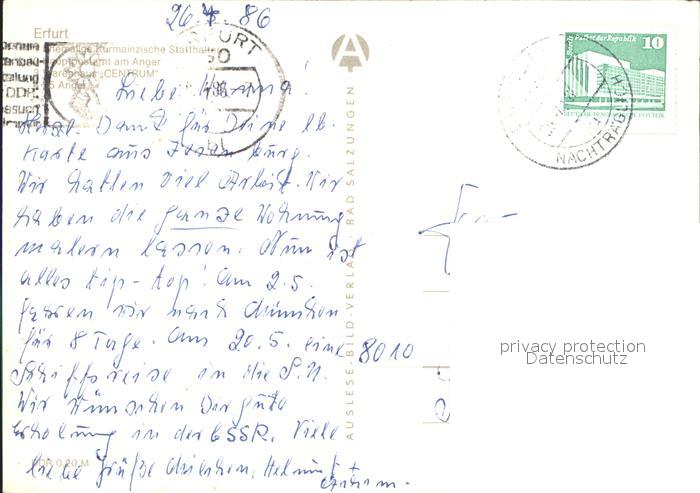 26.4 86
Erfurt
Ehemalige Kurmainzische Statthalterei
Hauptpostamt am Anger
Warenhaus „CENTRUM"
Anger
ERFURT
50
DDR
10
Palast der Republik
NACHTRÄGLICH
Liebe Hanna!
Herzl. Dank für Deine lb.
Karte aus Isenburg.
Wir hatten viel Arbeit. Wir
haben die ganze Wohnung
malern lassen. Nun ist
alles tip-top! Am 2.5.
fahren wir nach München
für 8 Tage. Am 20.5. eine
Schiffsreise in die S.U.
Wir wünschen Dir gute
Erholung in der ČSSR. Viele
liebe Grüße Helmut +
DDR 0,20 M
AUSLESE-BILD-VERLAG BAD SALZUNGEN
Frau
8010
privacy protection
Datenschutz